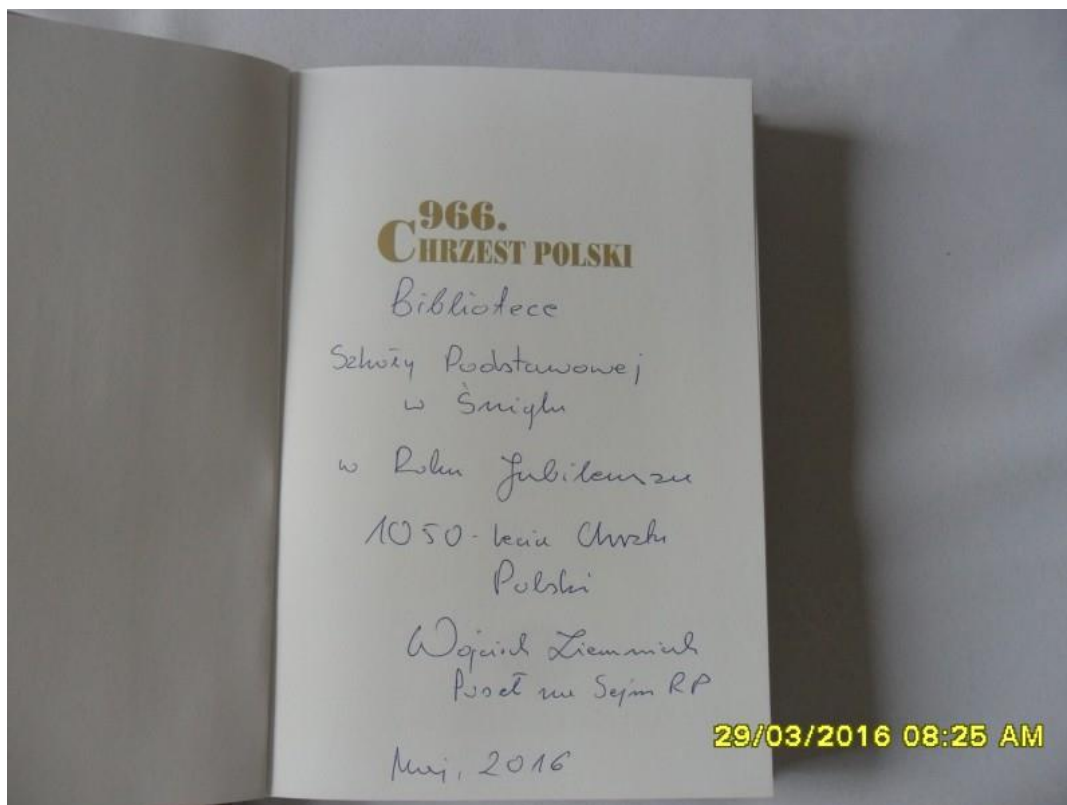 966.
CHRZEST POLSKI
Bibliotece
Szkoły Podstawowej
w Śniglu
w Roku Jubileuszu
1050-lecia Chrztu
Polski
Wojciech Ziemniak
Poseł na Sejm RP
Maj, 2016
29/03/2016 08:25 AM